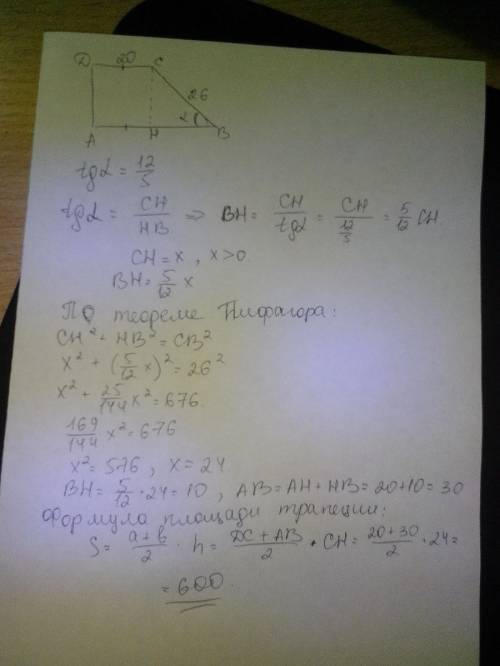 D 20 C
26
α
A H B
tgα = 12/5
tgα = CH/HB => BH = CH/tgα = CH/(12/5) = 5/12 CH.
CH = x , x>0
BH = 5/12 x
По теореме Пифагора:
CH² + HB² = CB²
x² + (5/12 x)² = 26²
x² + 25/144 x² = 676.
169/144 x² = 676
x² = 576 , x = 24
BH = 5/12 · 24 = 10 , AB = AH + HB = 20+10 = 30
Формула площади трапеции:
S = (a+b)/2 · h = (DC + AB)/2 · CH = (20+30)/2 · 24 =
= 600